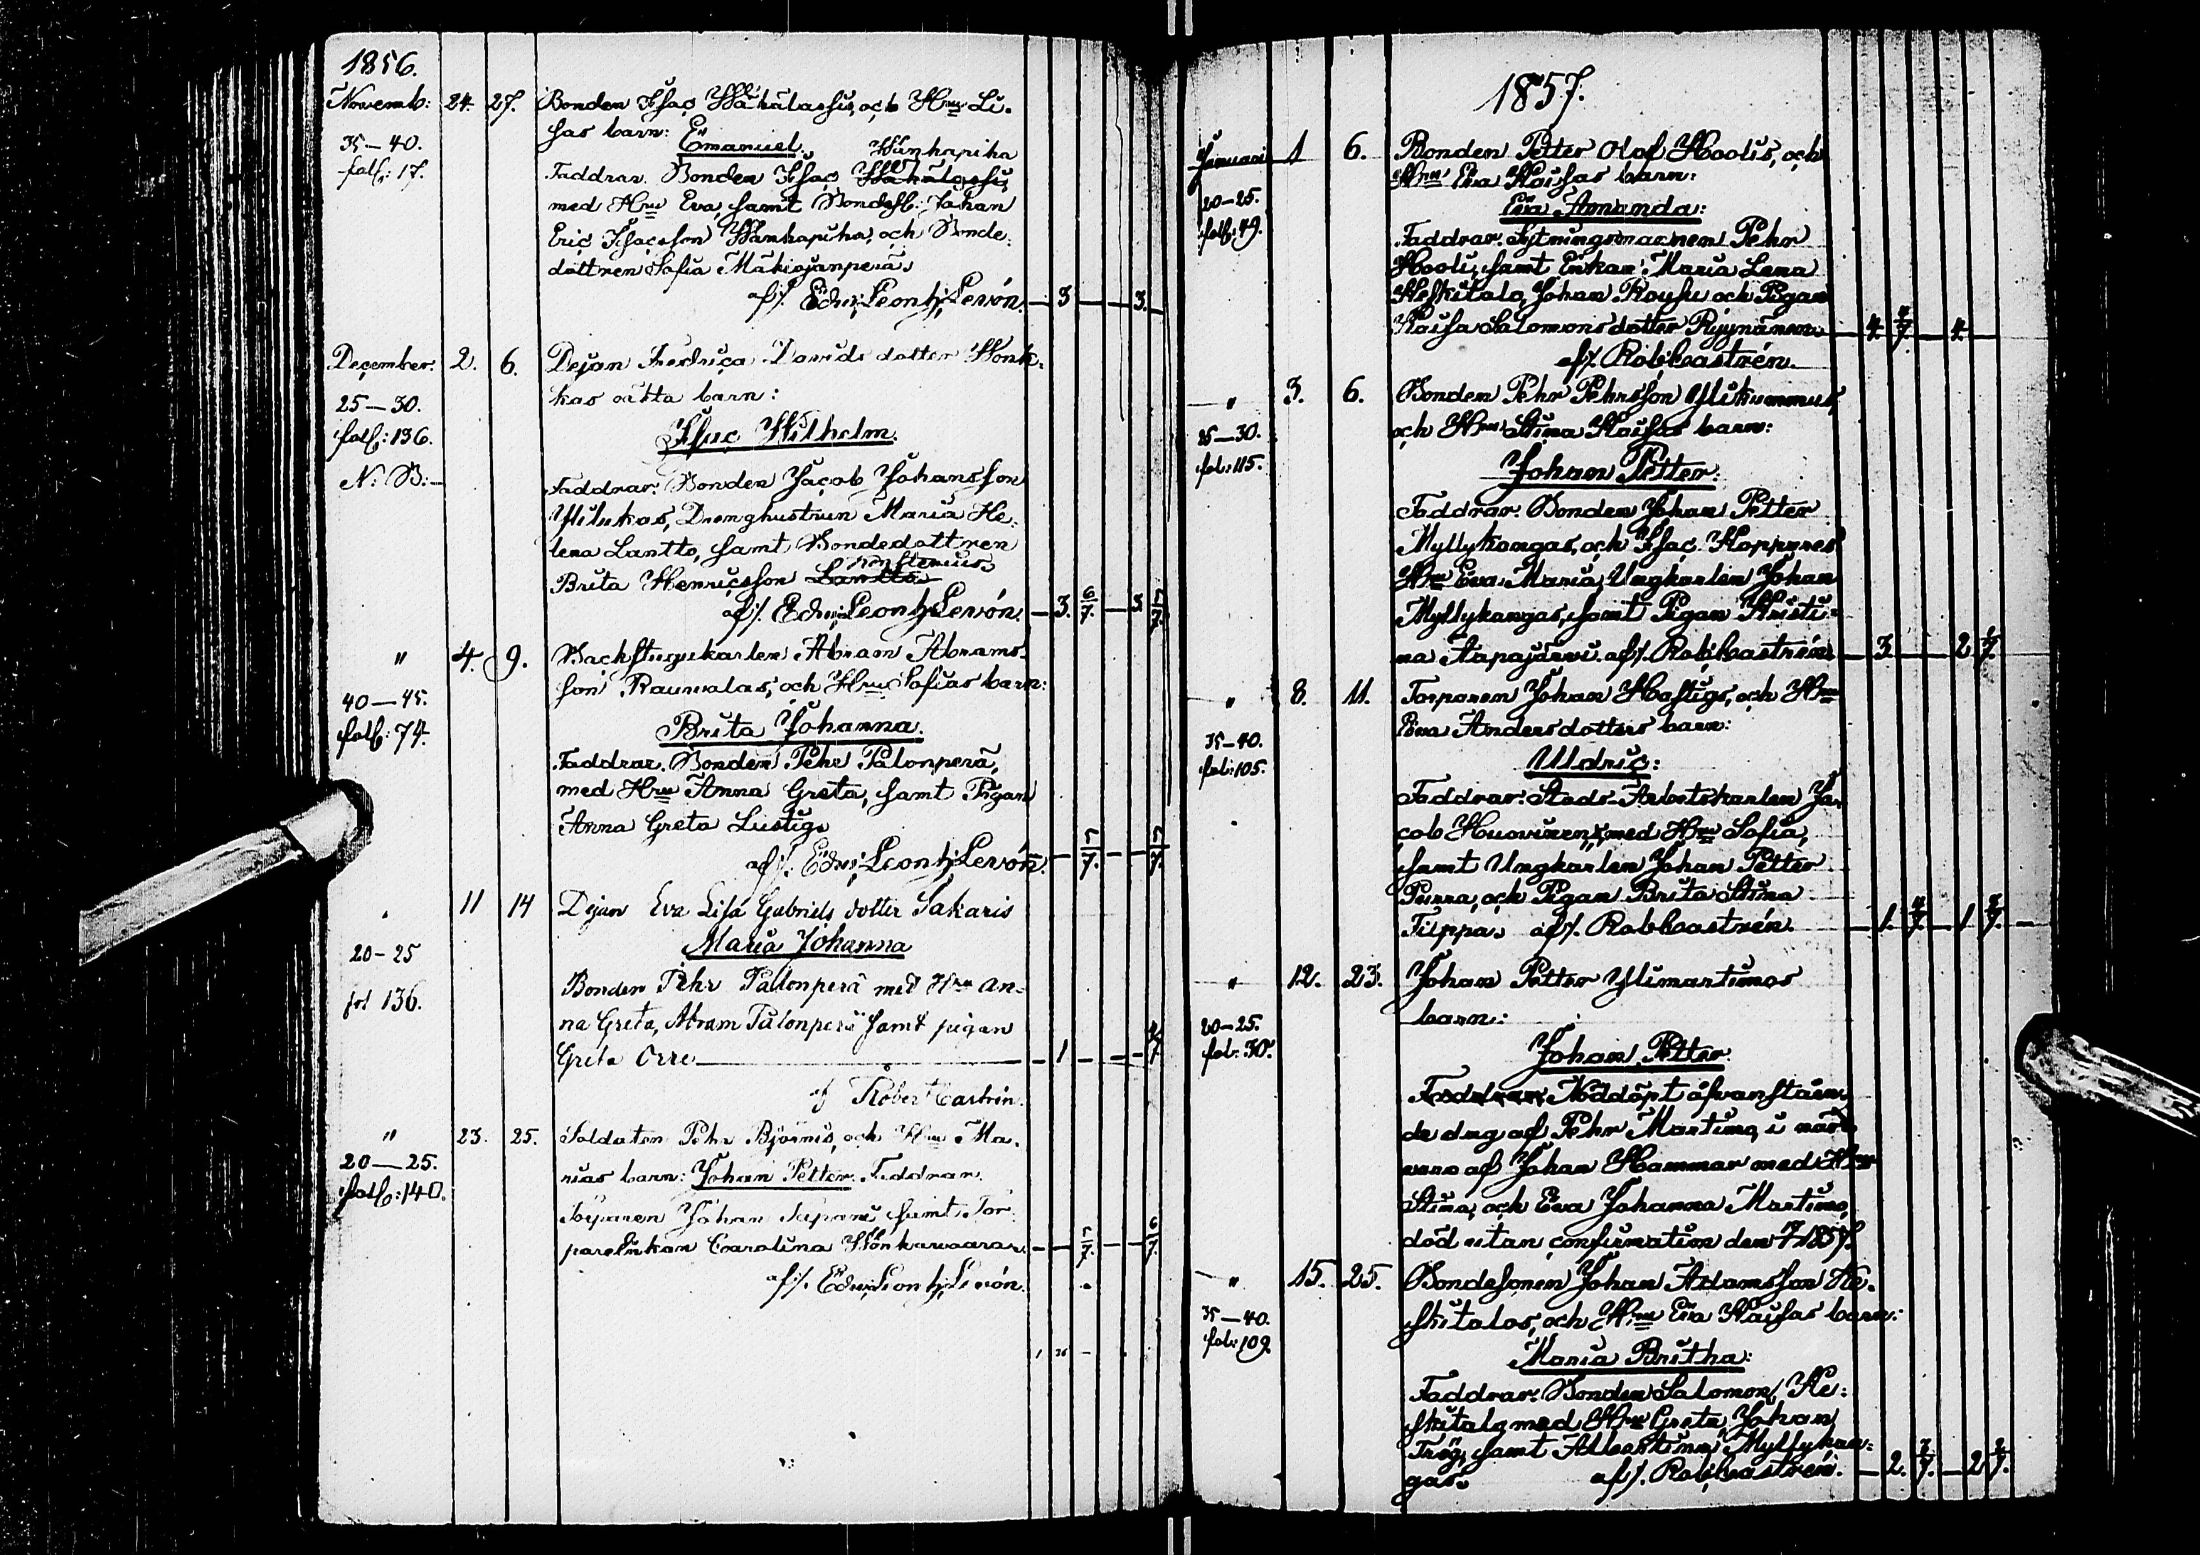 1856.
Novemb: 24. 27. Bonden Isac Wähälassis, och Hru Li-
35—40. sas barn: Emanuel.
Wanhapiha
fol: 17. Faddrar. Bonden Isac
med Hru Eva, samt Bondes. Johan
Eric Isacsson Wanhapiha, och Bonde-
dottren Sofia Mäkiojanperä.
af/. Edv: Leonh: Levón. — 3 — — 3.
December. 2. 6. Dejan Fredrica Davids dotter Honk-
25—30. kas oäkta barn:
fol: 136. Isac Wilhelm.
N: B:— Faddrar. Bonden Jacob Johansson
Drenghustrun Maria He-
lena Lantto, samt Bondedottren
Brita Henricsson Lantto
af/. Edv: Leonh: Levón. — 3. 6/7. — 3.
" 4. 9. Backstugukarlen Abram Abrams-
son Raumalas, och Hru Sofias barn:
40—45. Brita Johanna.
fol: 74. Faddrar. Bonden Pehr Palonperä,
med Hru Anna Greta, samt Pigan
Anna Greta Lustig.
af/. Edv: Leonh: Levón.
11 14 Dejan Eva Lisa Gabriels dotter Sakaris
20-25 Maria Johanna
fol 136. Bonden Pehr Palonperä med Hru An-
na Greta, Abram Palonperä samt pigan
Greta Orre — 1 —
af Robert Castrén.
" 23. 25. Soldaten Pehr Björnis, och Hru Ma-
20—25. rias barn: Johan Petter. Faddrar.
fol: 140. Torparen Johan samt Tor-
parenkan Carolina
af/. Edv: Leonh: Levón.
1857.
Januari 1 6. Bonden Petter Olof Hoolis, och
Hru Eva Kaisas barn:
20-25. Eva Amanda:
fol: 49. Faddrar. Sytningsmannen Pehr
Hooli, samt Enkan Maria Lena
Heskitalo, Johan och Pigan
Kaisa Salomons dotter Ryynänen — 4. — 4. —
af/. Rob: Castrén.
" 3. 6. Bonden Pehr Pehrsson Ylikummus,
25—30. och Hru Stina Kaisas barn:
fol: 115. Johan Petter:
Faddrar. Bonden Johan Petter
Myllykangas, och Isac Koppanes
Hru Eva Maria, Ungkarlen Johan
Myllykangas, samt Pigan Kristi-
na Aapajärvi. af/. Rob: Castrén. — 3. — 2
" 8. 11. Torparen Johan Hastigs, och Hru
Eva Andersdotters barn:
35-40. Uldric:
fol: 105. Faddrar. Stads-Arbetskarlen Ja-
cob Huovinen, med Hru Sofia,
samt Ungkarlen Johan Petter
Purra, och Pigan Brita Stina
Filppa. af/. Rob: Castrén. — 1. — 1
" 12. 23. Johan Petter Ylimartimos
barn:
20-25. Johan Petter
fol: 30. Faddrar Nöddöpt ofvanståen-
de dag af Pehr Martimo, i närva-
varo af Johan Hammar med Hru
Stina, och Eva Johanna Martimo,
död utan confirmation den 1857.
" 15. 25. Bondesonen Johan Adamsson He-
35—40. skitalos, och Hru Eva Kaisas barn:
fol: 109. Maria Britha:
Faddrar. Bonden Salomon He-
skitalo med Hru Greta, Johan
samt Albertina Myllykan-
gas. af/. Rob: Castrén. — 2. — 2